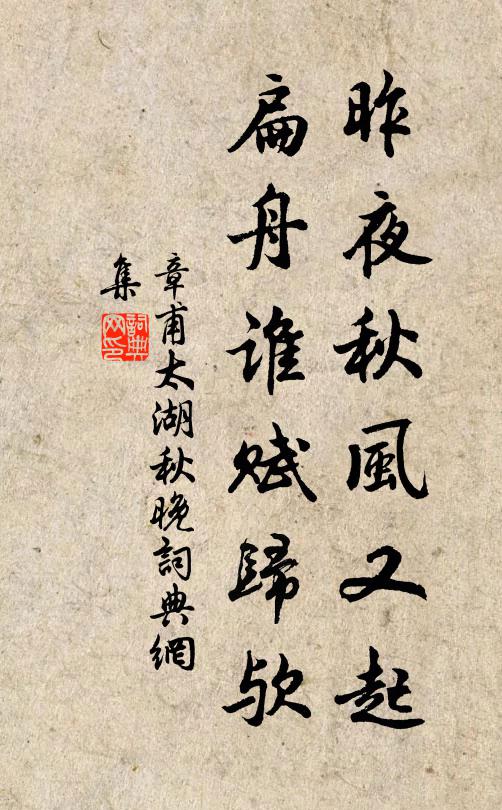 昨夜秋風又起
扁舟誰賦歸欤
章甫太湖秋晚詞典網
集
詞典
网印